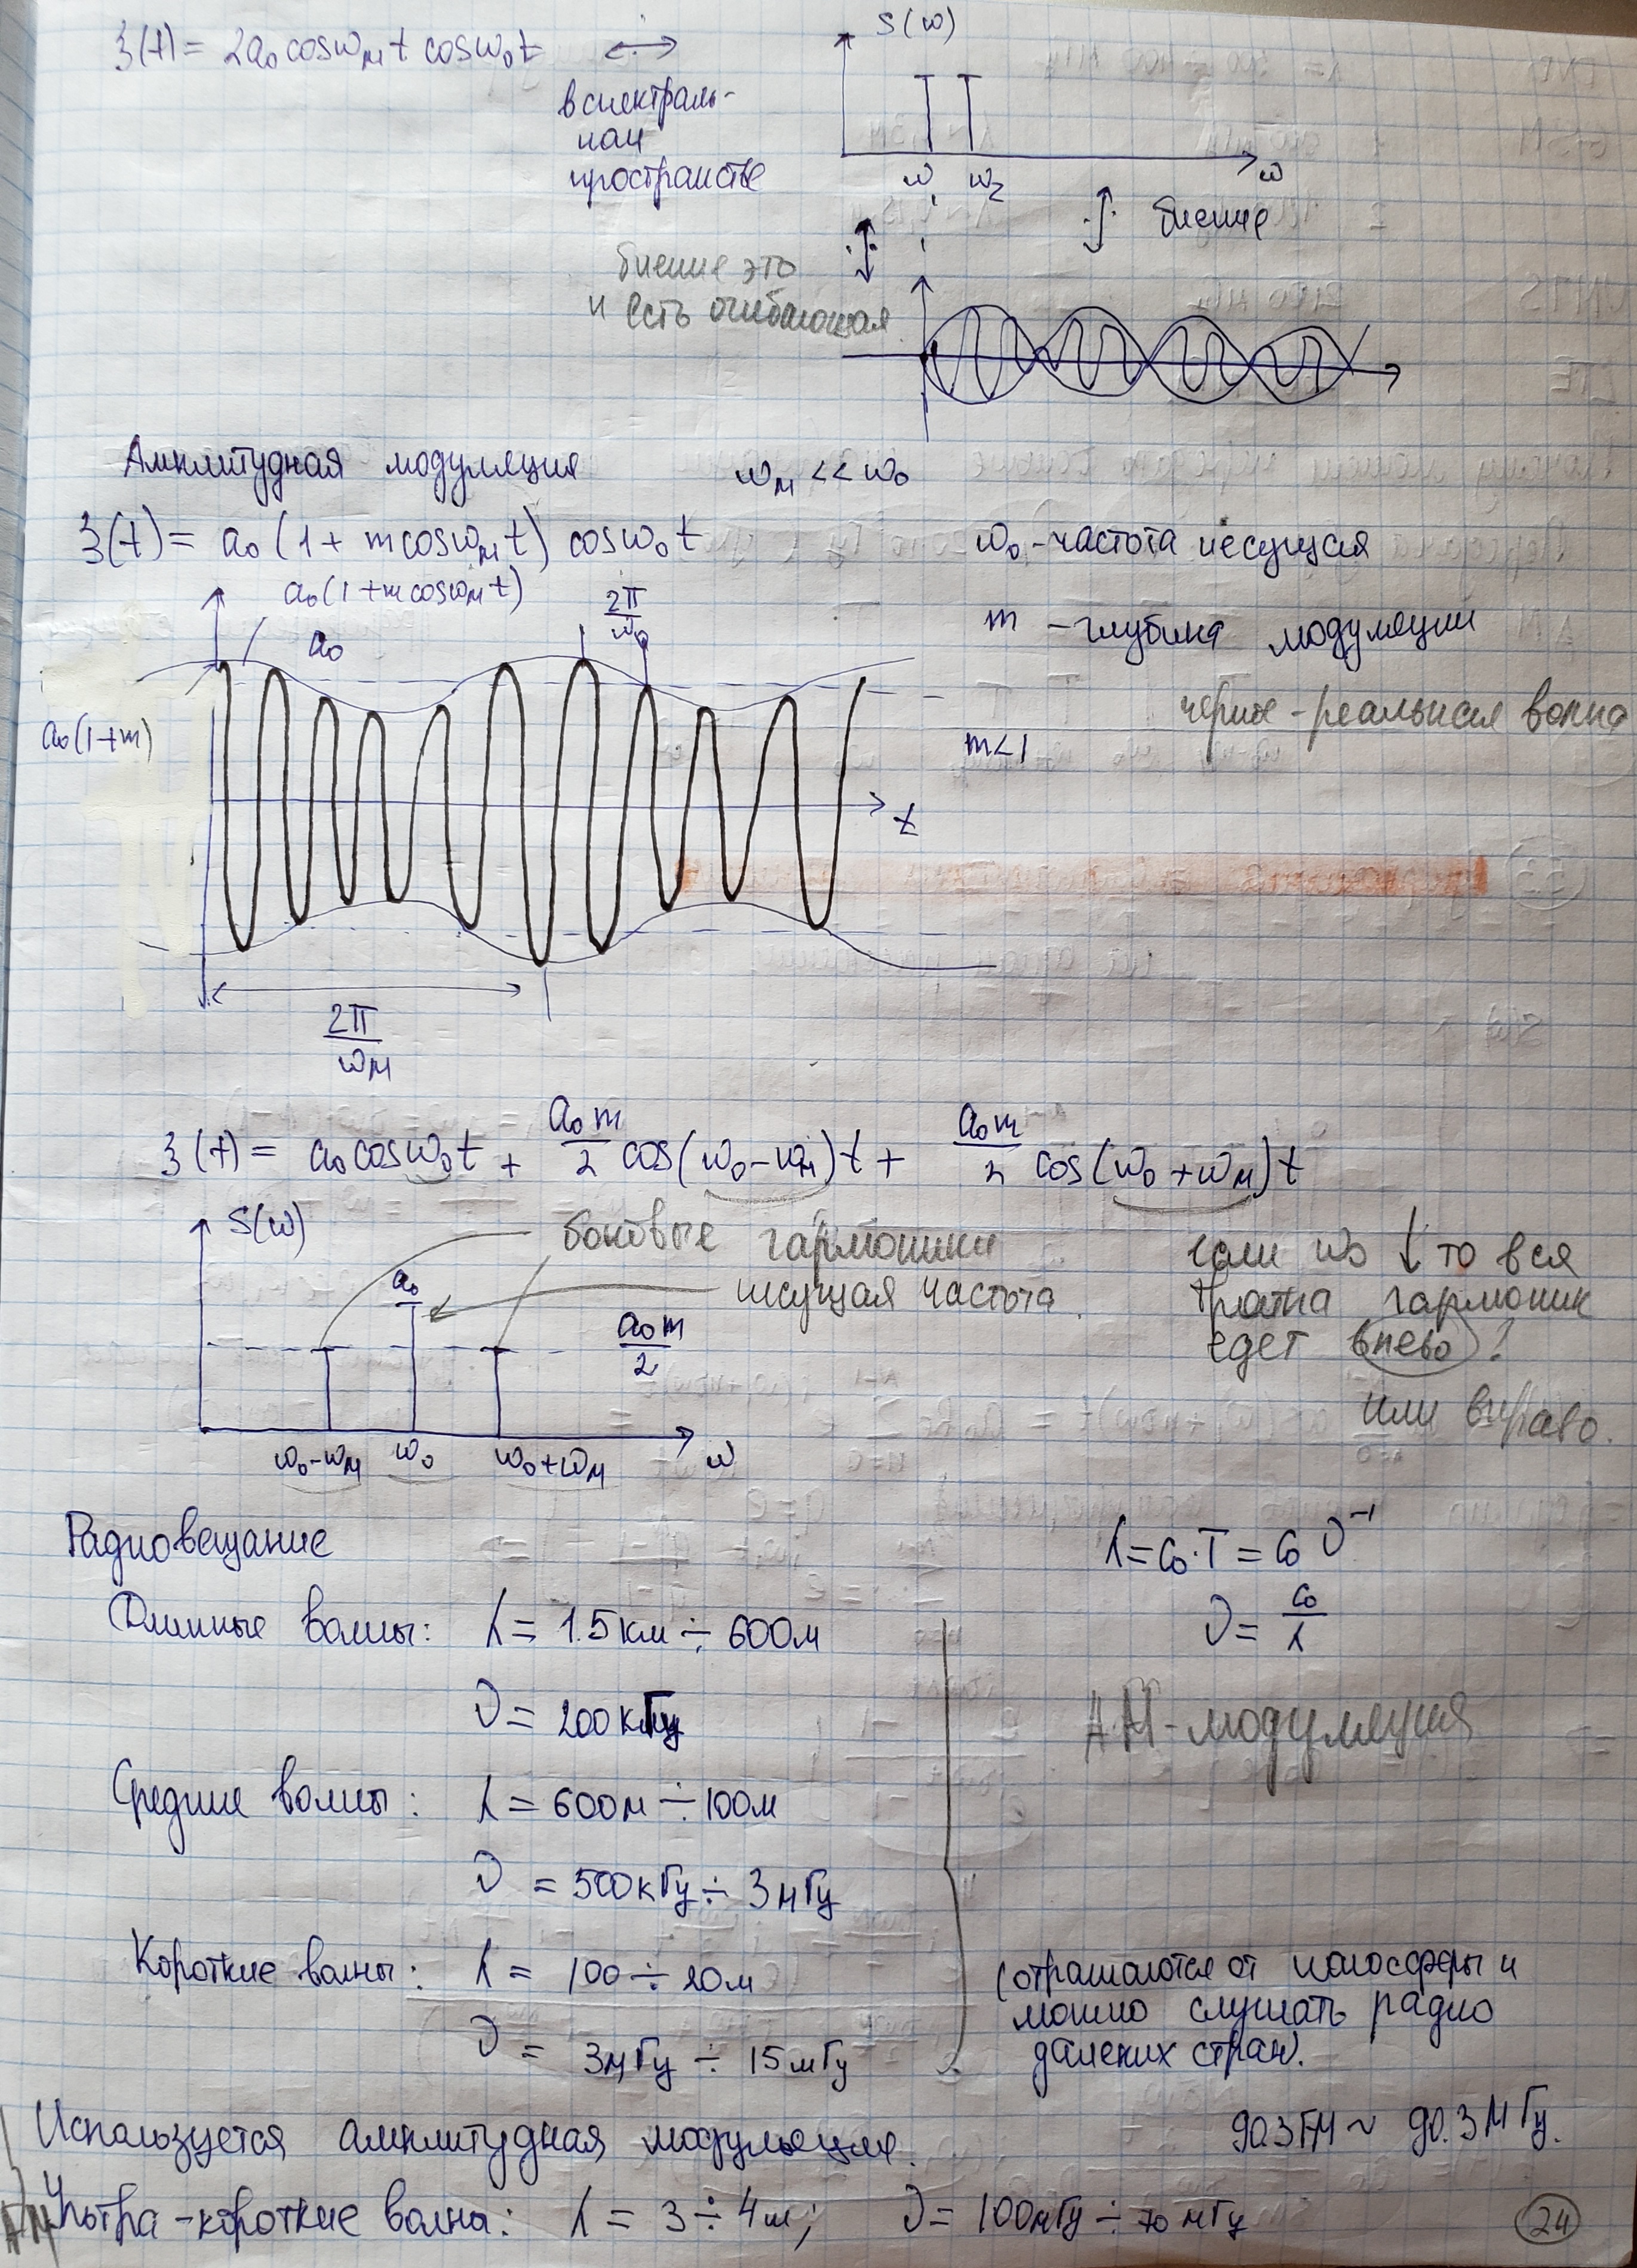 ξ(t) = 2a₀ cosω_м t cosω₀t ⟷
S(ω)
в спектраль-
ном
пространстве
ω ω₂ ω
биение
биение это
и есть огибающая
Амплитудная модуляция ω_м << ω₀
ξ(t) = a₀ (1 + m cosω_м t) cosω₀t
ω₀ - частота несущая
a₀(1+m cosω_м t)
2π/ω₀
a₀
m - глубина модуляции
черное - реальная волна
a₀(1+m)
m<1
t
2π/ω_м
ξ(t) = a₀ cosω₀t + a₀m/2 cos(ω₀-ω_м)t + a₀m/2 cos(ω₀+ω_м)t
S(ω)
боковые гармоники
несущая частота
a₀
a₀m/2
если ω₀ ↓ то вся
гармоник
едет влево?
или вправо.
ω₀-ω_м ω₀ ω₀+ω_м ω
Радиовещание
λ = c₀·T = c₀ ν⁻¹
Длинные волны: λ = 1.5км ÷ 600м
ν = c₀/λ
ν = 200кГц
АМ-модуляция
Средние волны: λ = 600м ÷ 100м
ν = 500кГц ÷ 3мГц
Короткие волны: λ = 100 ÷ 20м
ν = 3мГц ÷ 15мГц
(отражаются от ионосферы и
можно слушать радио
далеких стран.
Используется амплитудная модуляция.
90.3FM ~ 90.3МГц.
Ультра-короткие волны: λ = 3 ÷ 4м; ν = 100мГц ÷ 70мГц
24